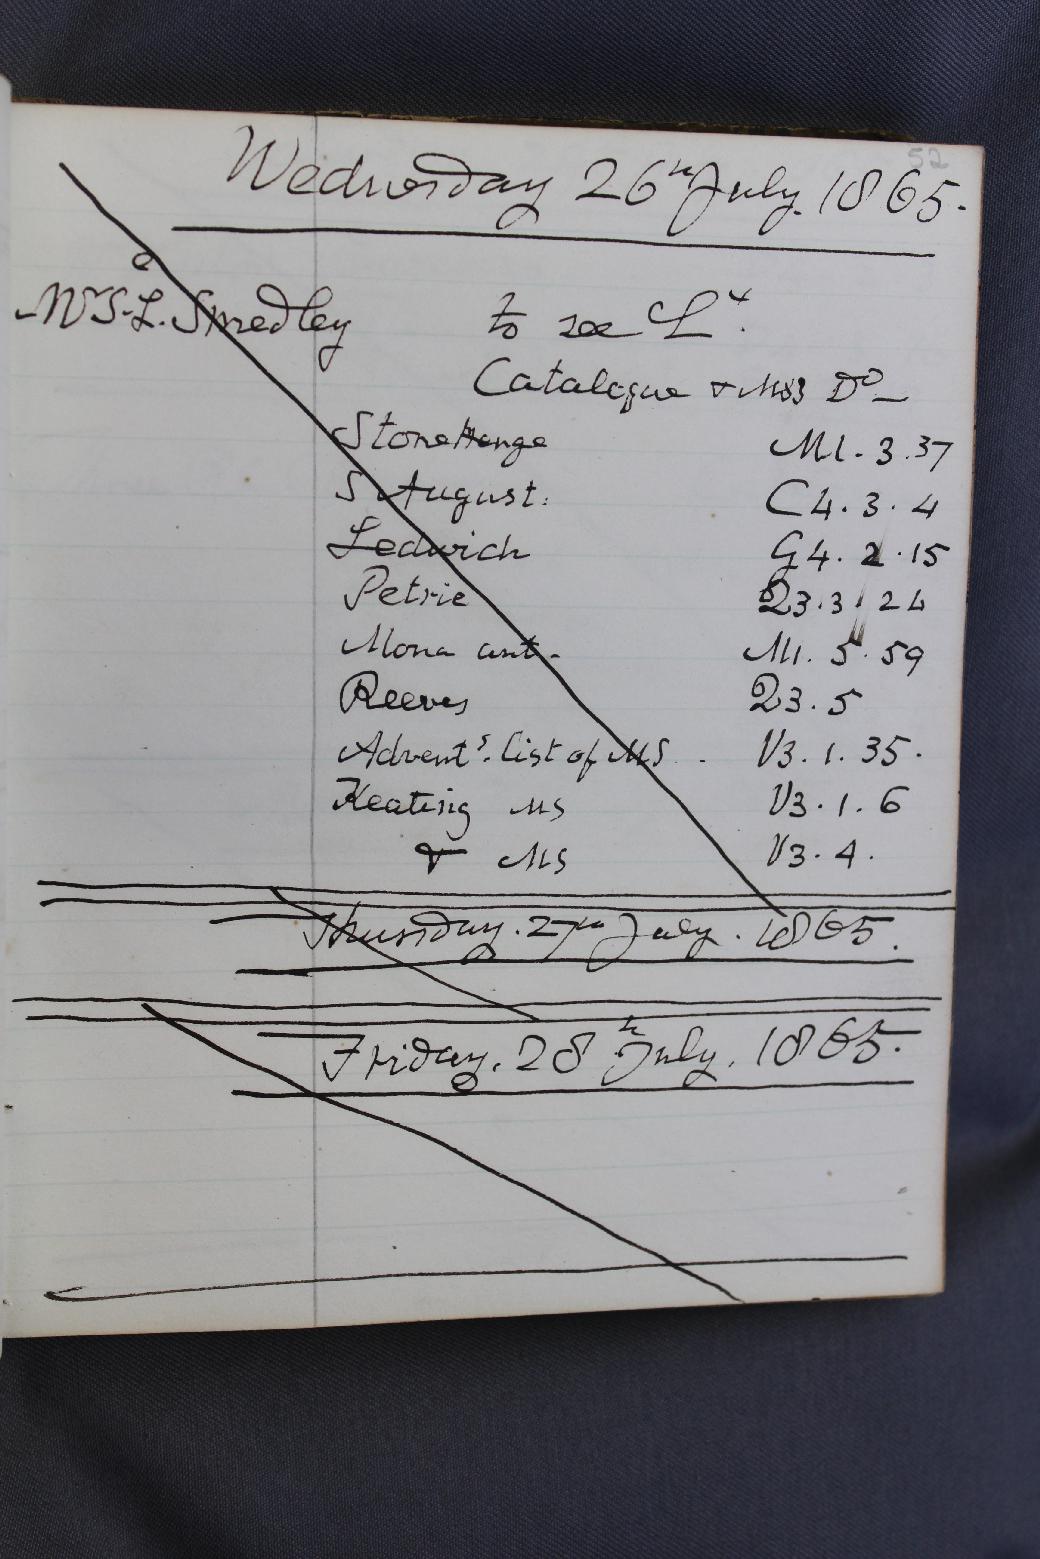 52
Wednesday 26th July. 1865.
Mr S. L. Smedley to see Ly.
Catalogue & MSS Do
StoneHenge M1. 3. 37
S August: C4. 3. 4
Ledwich G4. 2. 15
Petrie Q3. 3. 24
Mona ant. M1. 5. 59
Reeves Q3. 5
Adverts. list of MS. V3. 1. 35.
Keating MS V3. 1. 6
& MS V3. 4.
Thursday. 27th July. 1865.
Friday. 28th July. 1865.